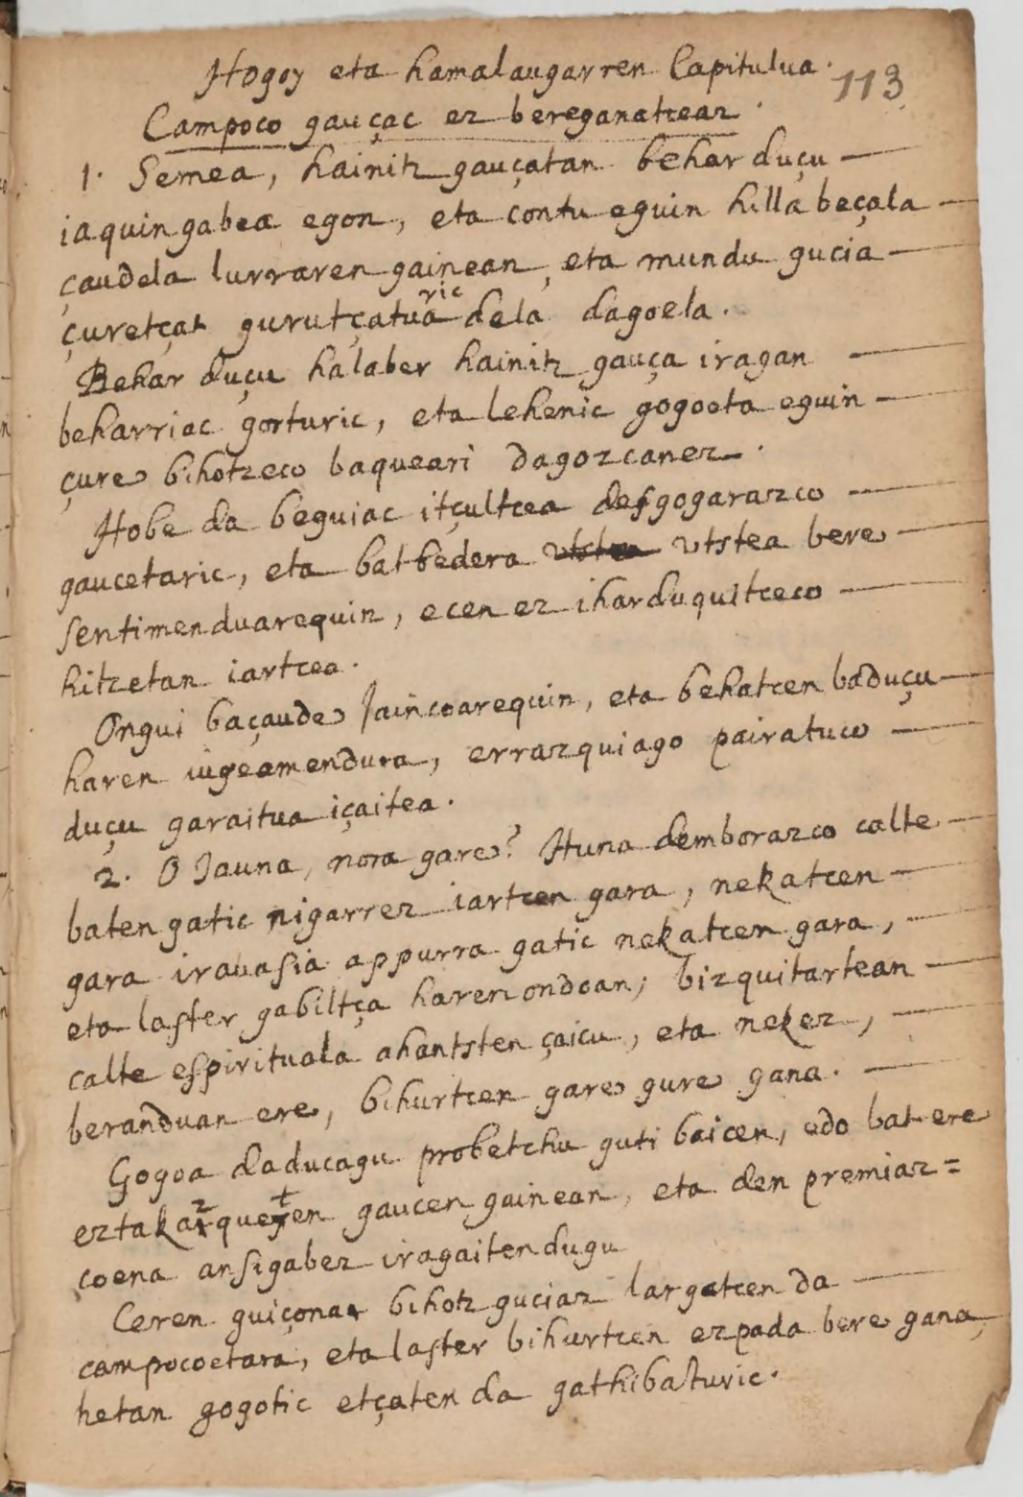 Hogoy eta hamalaugarren Capitulua.
113
Campoco gauçac ez bereganatceaz.
1. Semea, hainitz gauçatan behar duçu —
iaquingabea egon, eta contu eguin hilla beçala —
çaudela lurraren gainean, eta mundu gucia —
çuretçat gurutçatuaric dela dagoela.
Behar duçu halaber hainitz gauça iragan —
beharriac gorturic, eta lehenic gogoeta eguin —
çure bihotzeco baqueari dagozcanez.
Hobe da beguiac itçultcea desgogarazco —
gaucetaric, eta batbedera utstea utstea bere —
sentimenduarequin, ecen ez iharduquitceco —
hitzetan iartcea.
Ongui baçaude Jaincoarequin, eta behatcen baduçu —
haren iugeamendura, errazquiago pairatuco —
duçu garaitua içaitea.
2. O Jauna, nora gare? Huna demborazco calte —
baten gatic nigarrez iartcen gara, nekatcen —
gara irabasia appurra gatic nekatcen gara, —
eta laster gabiltça haren ondoan; bizquitartean —
calte espirituala ahantsten çaicu, eta nekez, —
beranduan ere, bihurtcen gare gure gana. —
Gogoa daducagu probetchu guti baicen, edo batere
eztakazqueten gaucen gainean, eta den premiaz=
çoena ansigabez iragaiten dugu
Ceren guiçona bihotz guciaz largatcen da —
campocoetara, eta laster bihurtcen ezpada bere gana,
hetan gogotic etçaten da gathibaturic.